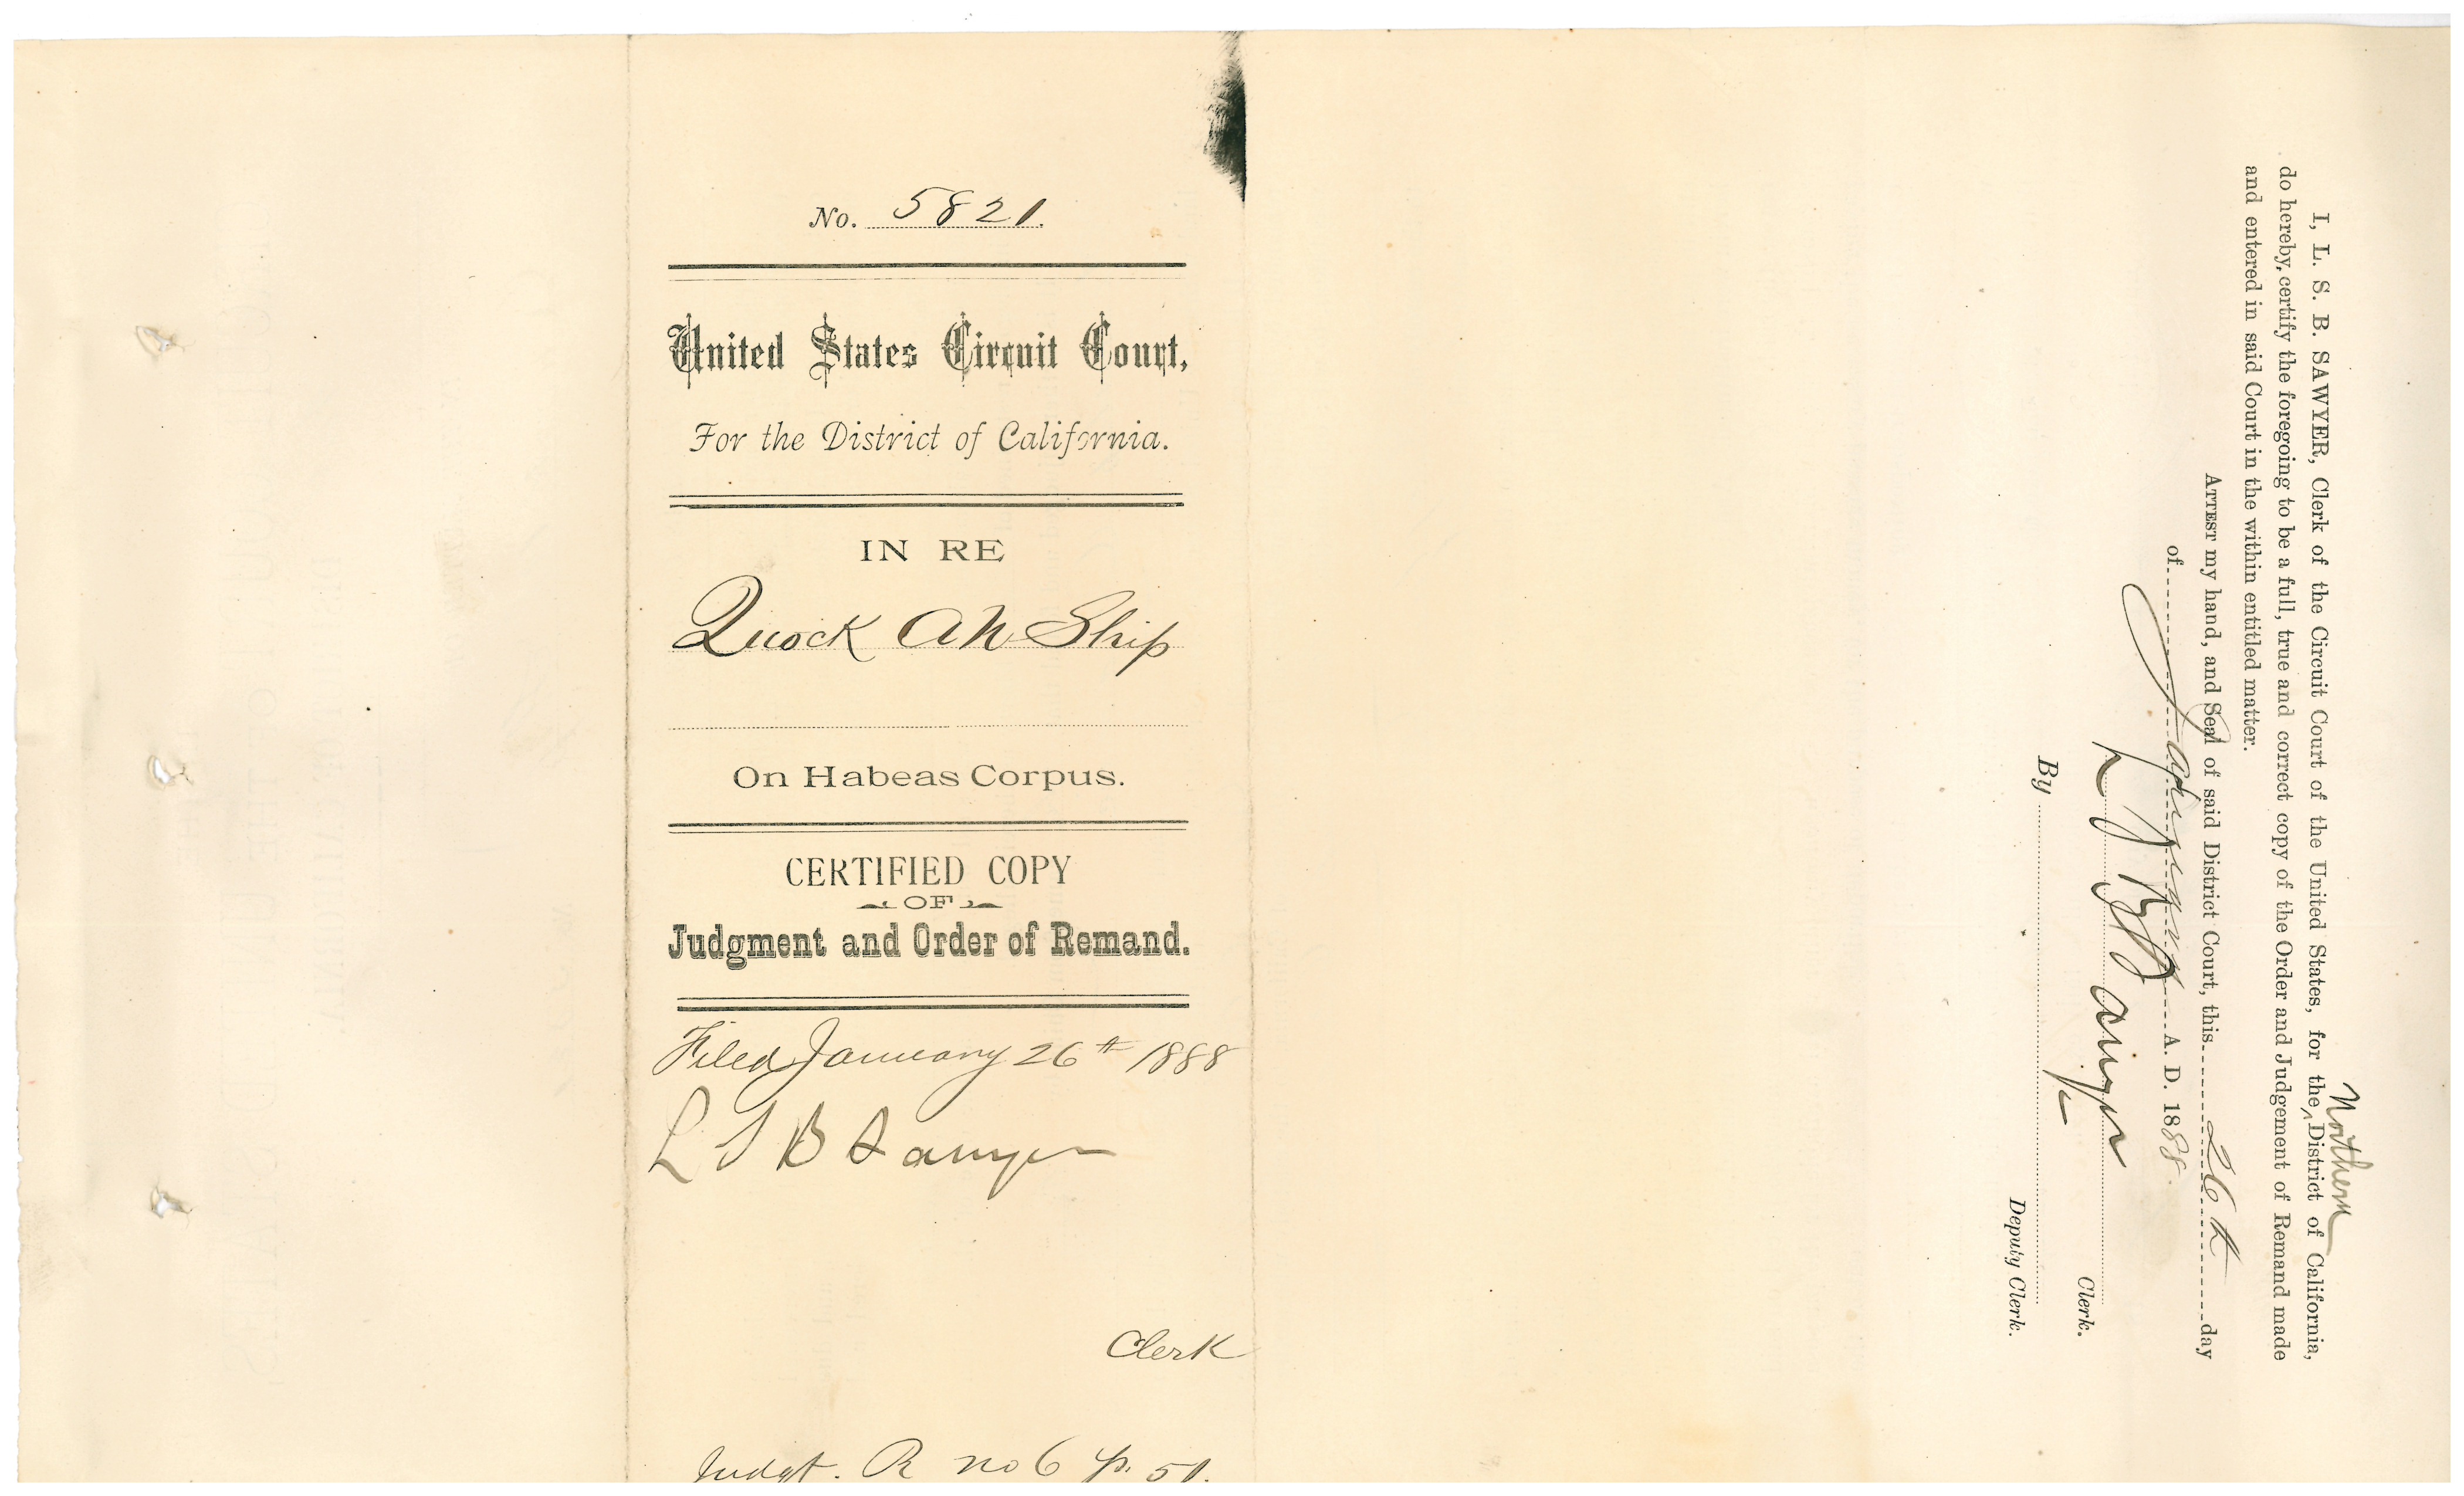 No. 5821.
United States Circuit Court,
For the District of California.
IN RE
Quock Ah Ship
On Habeas Corpus.
CERTIFIED COPY
OF
Judgment and Order of Remand.
Filed January 26th 1888
L S B Sawyer
Clerk
Judgt. R no 6 p. 51.
Northern
I, L. S. B. SAWYER, Clerk of the Circuit Court of the United States, for the ^ District of California,
do hereby, certify the foregoing to be a full, true and correct copy of the Order and Judgement of Remand made
and entered in said Court in the within entitled matter.
ATTEST my hand, and Seal of said District Court, this 26th day
of January A. D. 1888.
L S B Sawyer Clerk.
By Deputy Clerk.